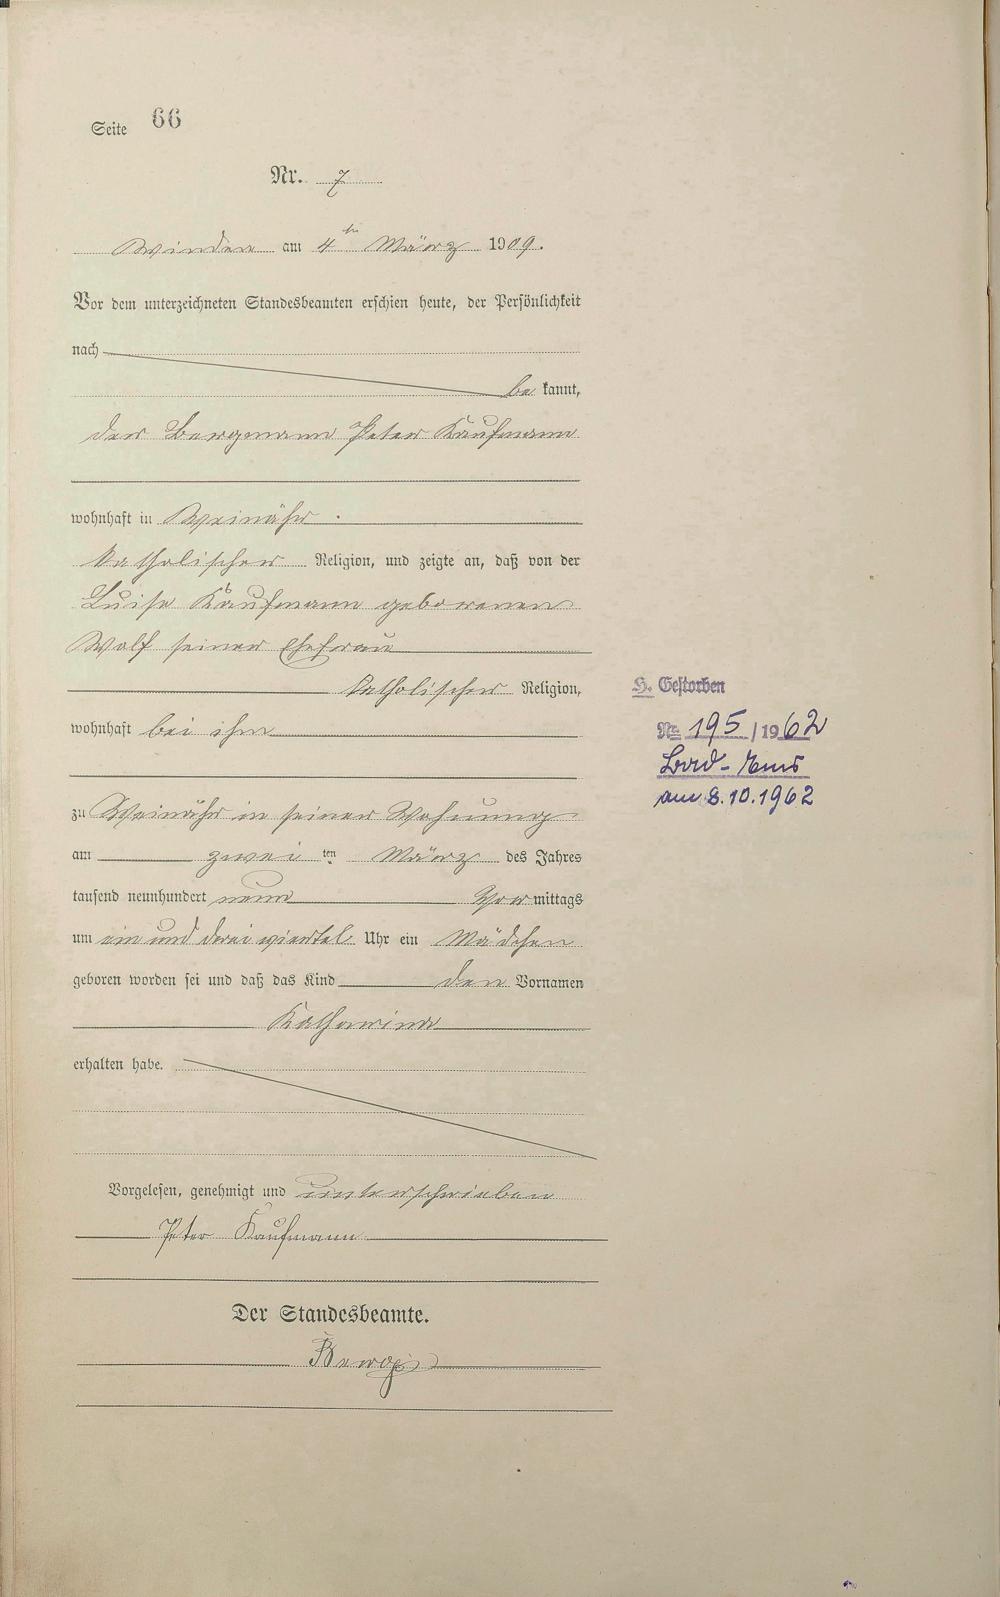 Seite 66
Nr. 7
Winden am 4ten März 1909.
Vor dem unterzeichneten Standesbeamten erschien heute, der Persönlichkeit
nach
be kannt,
der Bergmann Peter Kaufmann
wohnhaft in Weinähr.
katholischer Religion, und zeigte an, daß von der
Luise Kaufmann geborenen
Wolf seiner Ehefrau
katholischer Religion,
wohnhaft bei ihm
zu Weinähr in seiner Wohnung
am zwei ten März des Jahres
tausend neunhundert neun Vor mittags
um ein und drei viertel Uhr ein Mädchen
geboren worden sei und daß das Kind den Vornamen
Katharina
erhalten habe.
Vorgelesen, genehmigt und unterschrieben
Peter Kaufmann
Der Standesbeamte.
H. Gestorben
Nr. 195 / 1962
Bad-Ems
am 8.10.1962